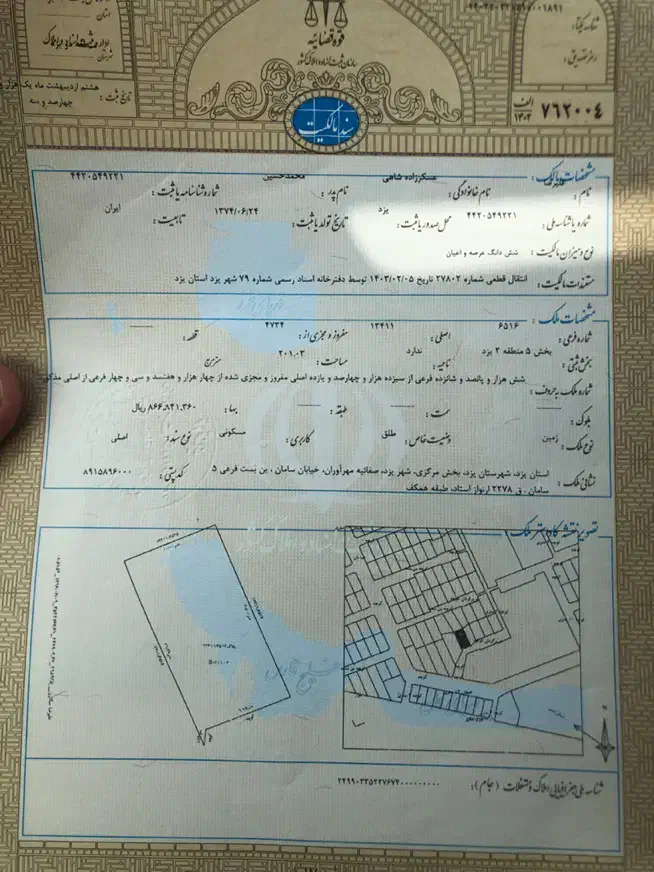 قوه قضائیه
سازمان ثبت اسناد و املاک کشور
استان
شهرستان
تاریخ ثبت :
هشتم اردیبهشت ماه یک هزار و
چهارصد و سه
شناسه یکتا :
رمز تصدیق :
الف ۱۴۰۳ ۷۶۲۰۰۴
سند مالکیت
مشخصات مالک :
نام : نام خانوادگی : عسکرزاده شاهی نام پدر : محمدحسین شماره شناسنامه یا ثبت : ۴۴۲۰۵۴۹۲۲۱
شماره یا شناسه ملی : ۴۴۲۰۵۴۹۲۲۱ محل صدور یا ثبت : یزد تاریخ تولد یا ثبت : ۱۳۷۴/۰۶/۲۴ تابعیت : ایران
نوع و میزان مالکیت : شش دانگ عرصه و اعیان
مستندات مالکیت : انتقال قطعی شماره ۲۷۸۰۲ تاریخ ۱۴۰۳/۰۲/۰۵ توسط دفترخانه اسناد رسمی شماره ۷۹ شهر یزد استان یزد
مشخصات ملک :
شماره فرعی : ۶۵۱۶ اصلی : ۱۳۴۱۱ مفروز و مجزی از : ۴۷۳۴ قطعه :
بخش ثبتی : بخش ۵ منطقه ۲ یزد ناحیه : ندارد مساحت : ۲۰۱.۰۳ مترمربع
شماره ملک به حروف : شش هزار و پانصد و شانزده فرعی از سیزده هزار و چهارصد و یازده اصلی مفروز و مجزی شده از چهار هزار و هفتصد و سی و چهار فرعی از اصلی مذکور
بلوک : سمت : طبقه : بها : ۸۶۶,۸۴۱,۳۶۰ ریال
نوع ملک : زمین وضعیت خاص : طلق کاربری : مسکونی نوع سند : اصلی
نشانی ملک : استان یزد، شهرستان یزد، بخش مرکزی، شهر یزد، صفائیه مهرآوران، خیابان سامان ، بن بست فرعی ۵
سامان ، ق ۲۲۷۸ ارنواز استاد، طبقه همکف
کد پستی : ۸۹۱۵۸۹۶۰۰۰
تصویر نقشه کاداستر ملک :
خلیج فارس
شناسه ملی جغرافیایی املاک و مستغلات (جام) : ۲۴۹۹۰۳۳۵۲۲۷۶۷۴۰۰۰۰۰۰۰۰۰